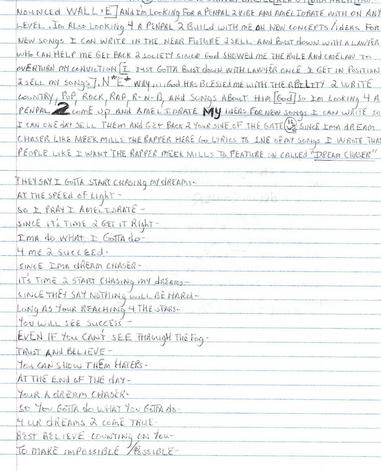 NOUNCED WALL·E] AND IM LOOKING FOR A PENPAL 2 VIBE AND AMELIORATE WITH ON ANY
LEVEL. IM ALSO LOOKING 4 A PENPAL 2 BUILD WITH ME ON NEW CONCEPTS/IDEAS FOR
NEW SONGS I CAN WRITE IN THE NEAR FUTURE 2 SELL AND BUST DOWN WITH A LAWYER
WHO CAN HELP ME GET BACK 2 SOCIETY SINCE GOD SHOWED ME THE RULE AND CASELAW TO
OVERTURN MY CONVICTION [I JUST GOTTA BUST DOWN WITH LAWYER ONCE I GET IN POSITION
2 SELL MY SONGS]. N*E* WAY... GOD HAS BLESSED ME WITH THE ABILITY 2 WRITE
COUNTRY, POP, ROCK, RAP, R-N-B, AND SONGS ABOUT HIM [GOD] SO IM LOOKING 4 A
PENPAL 2 COME UP AND AMELIORATE MY IDEAS FOR NEW SONGS I CAN WRITE SO
I CAN ONE DAY SELL THEM AND GET BACK 2 YOUR SIDE OF THE GATE SINCE IMA DREAM
CHASER LIKE MEEK MILLS THE RAPPER HERE GO LYRICS TO 1 OF MY SONGS I WROTE THAT
PEOPLE LIKE I WANT THE RAPPER MEEK MILLS TO FEATURE ON CALLED "DREAM CHASER"
THEY SAY I GOTTA START CHASING MY DREAMS-
AT THE SPEED OF LIGHT-
SO I PRAY I AMELIORATE-
SINCE IT'S TIME 2 GET IT RIGHT-
IMA DO WHAT I GOTTA DO-
4 ME 2 SUCCEED-
SINCE IMA DREAM CHASER-
IT'S TIME 2 START CHASING MY DREAMS-
SINCE THEY SAY NOTHING WILL BE HARD-
LONG AS YOUR REACHING 4 THE STARS-
YOU WILL SEE SUCCESS-
EVEN IF YOU CAN'T SEE THROUGH THE FOG-
TRUST AND BELIEVE-
YOU CAN SHOW THEM HATERS-
AT THE END OF THE DAY-
YOUR A DREAM CHASER-
SO YOU GOTTA DO WHAT YOU GOTTA DO-
4 UR DREAMS 2 COME TRUE-
BEST BELIEVE COUNTING ON YOU-
TO MAKE IMPOSSIBLE POSSIBLE-